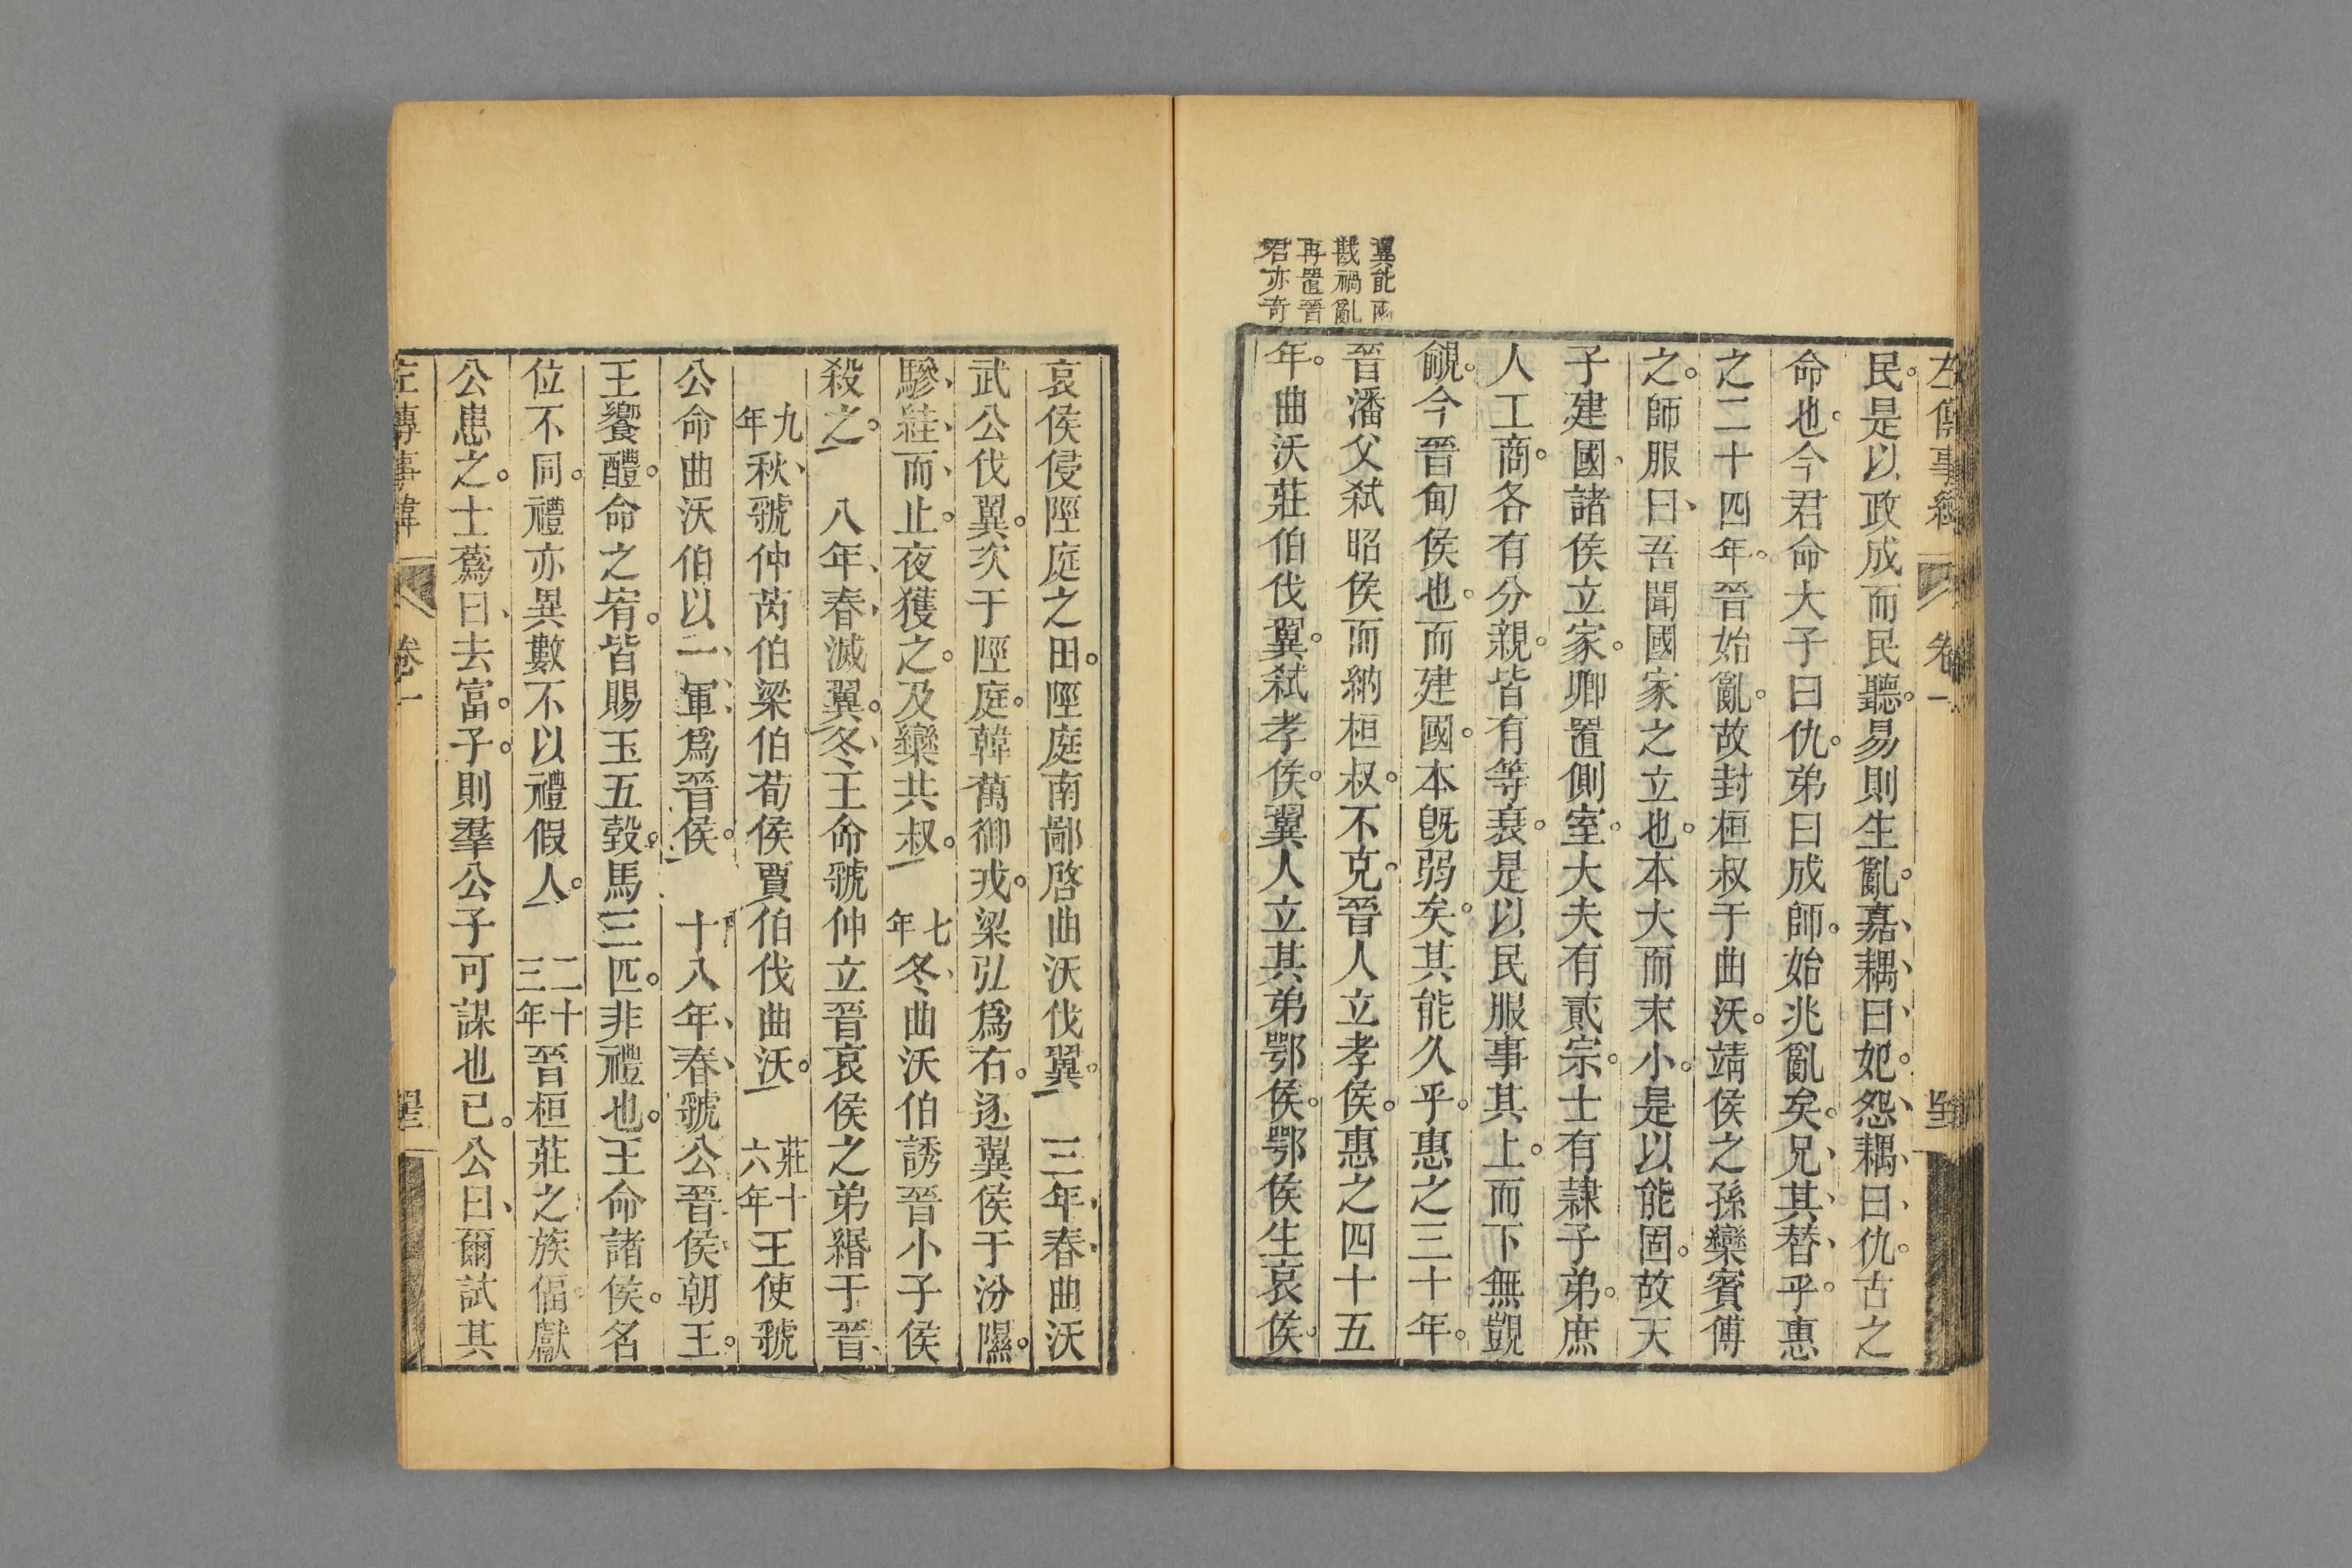 左傳事緯
卷一
民是以政成而民聽易則生亂嘉耦曰妃怨耦曰仇古之
命也今君命大子曰仇弟曰成師始兆亂矣兄其替乎惠
之二十四年晉始亂故封桓叔于曲沃靖侯之孫欒賓傅
之師服曰吾聞國家之立也本大而末小是以能固故天
子建國諸侯立家卿置側室大夫有貳宗士有隸子弟庶
人工商各有分親皆有等衰是以民服事其上而下無覬
覦今晉甸侯也而建國本旣弱矣其能久乎惠之三十年
晉潘父弑昭侯而納桓叔不克晉人立孝侯惠之四十五
年曲沃莊伯伐翼弑孝侯翼人立其弟鄂侯鄂侯生哀侯
翼能兩
戡禍亂
再置晉
君亦奇
哀侯侵陘庭之田陘庭南鄙啓曲沃伐翼 三年春曲沃
武公伐翼次于陘庭韓萬御戎梁弘爲右逐翼侯于汾隰
驂絓而止夜獲之及欒共叔 七年冬曲沃伯誘晉小子侯
殺之 八年春滅翼冬王命虢仲立晉哀侯之弟緡于晉
九年秋虢仲芮伯梁伯荀侯賈伯伐曲沃 莊十六年王使虢
公命曲沃伯以一軍爲晉侯 十八年春虢公晉侯朝王
王饗醴命之宥皆賜玉五瑴馬三匹非禮也王命諸侯名
位不同禮亦異數不以禮假人 二十三年晉桓莊之族偪獻
公患之士蔿曰去富子則羣公子可謀也已公曰爾試其
左傳事緯
卷一